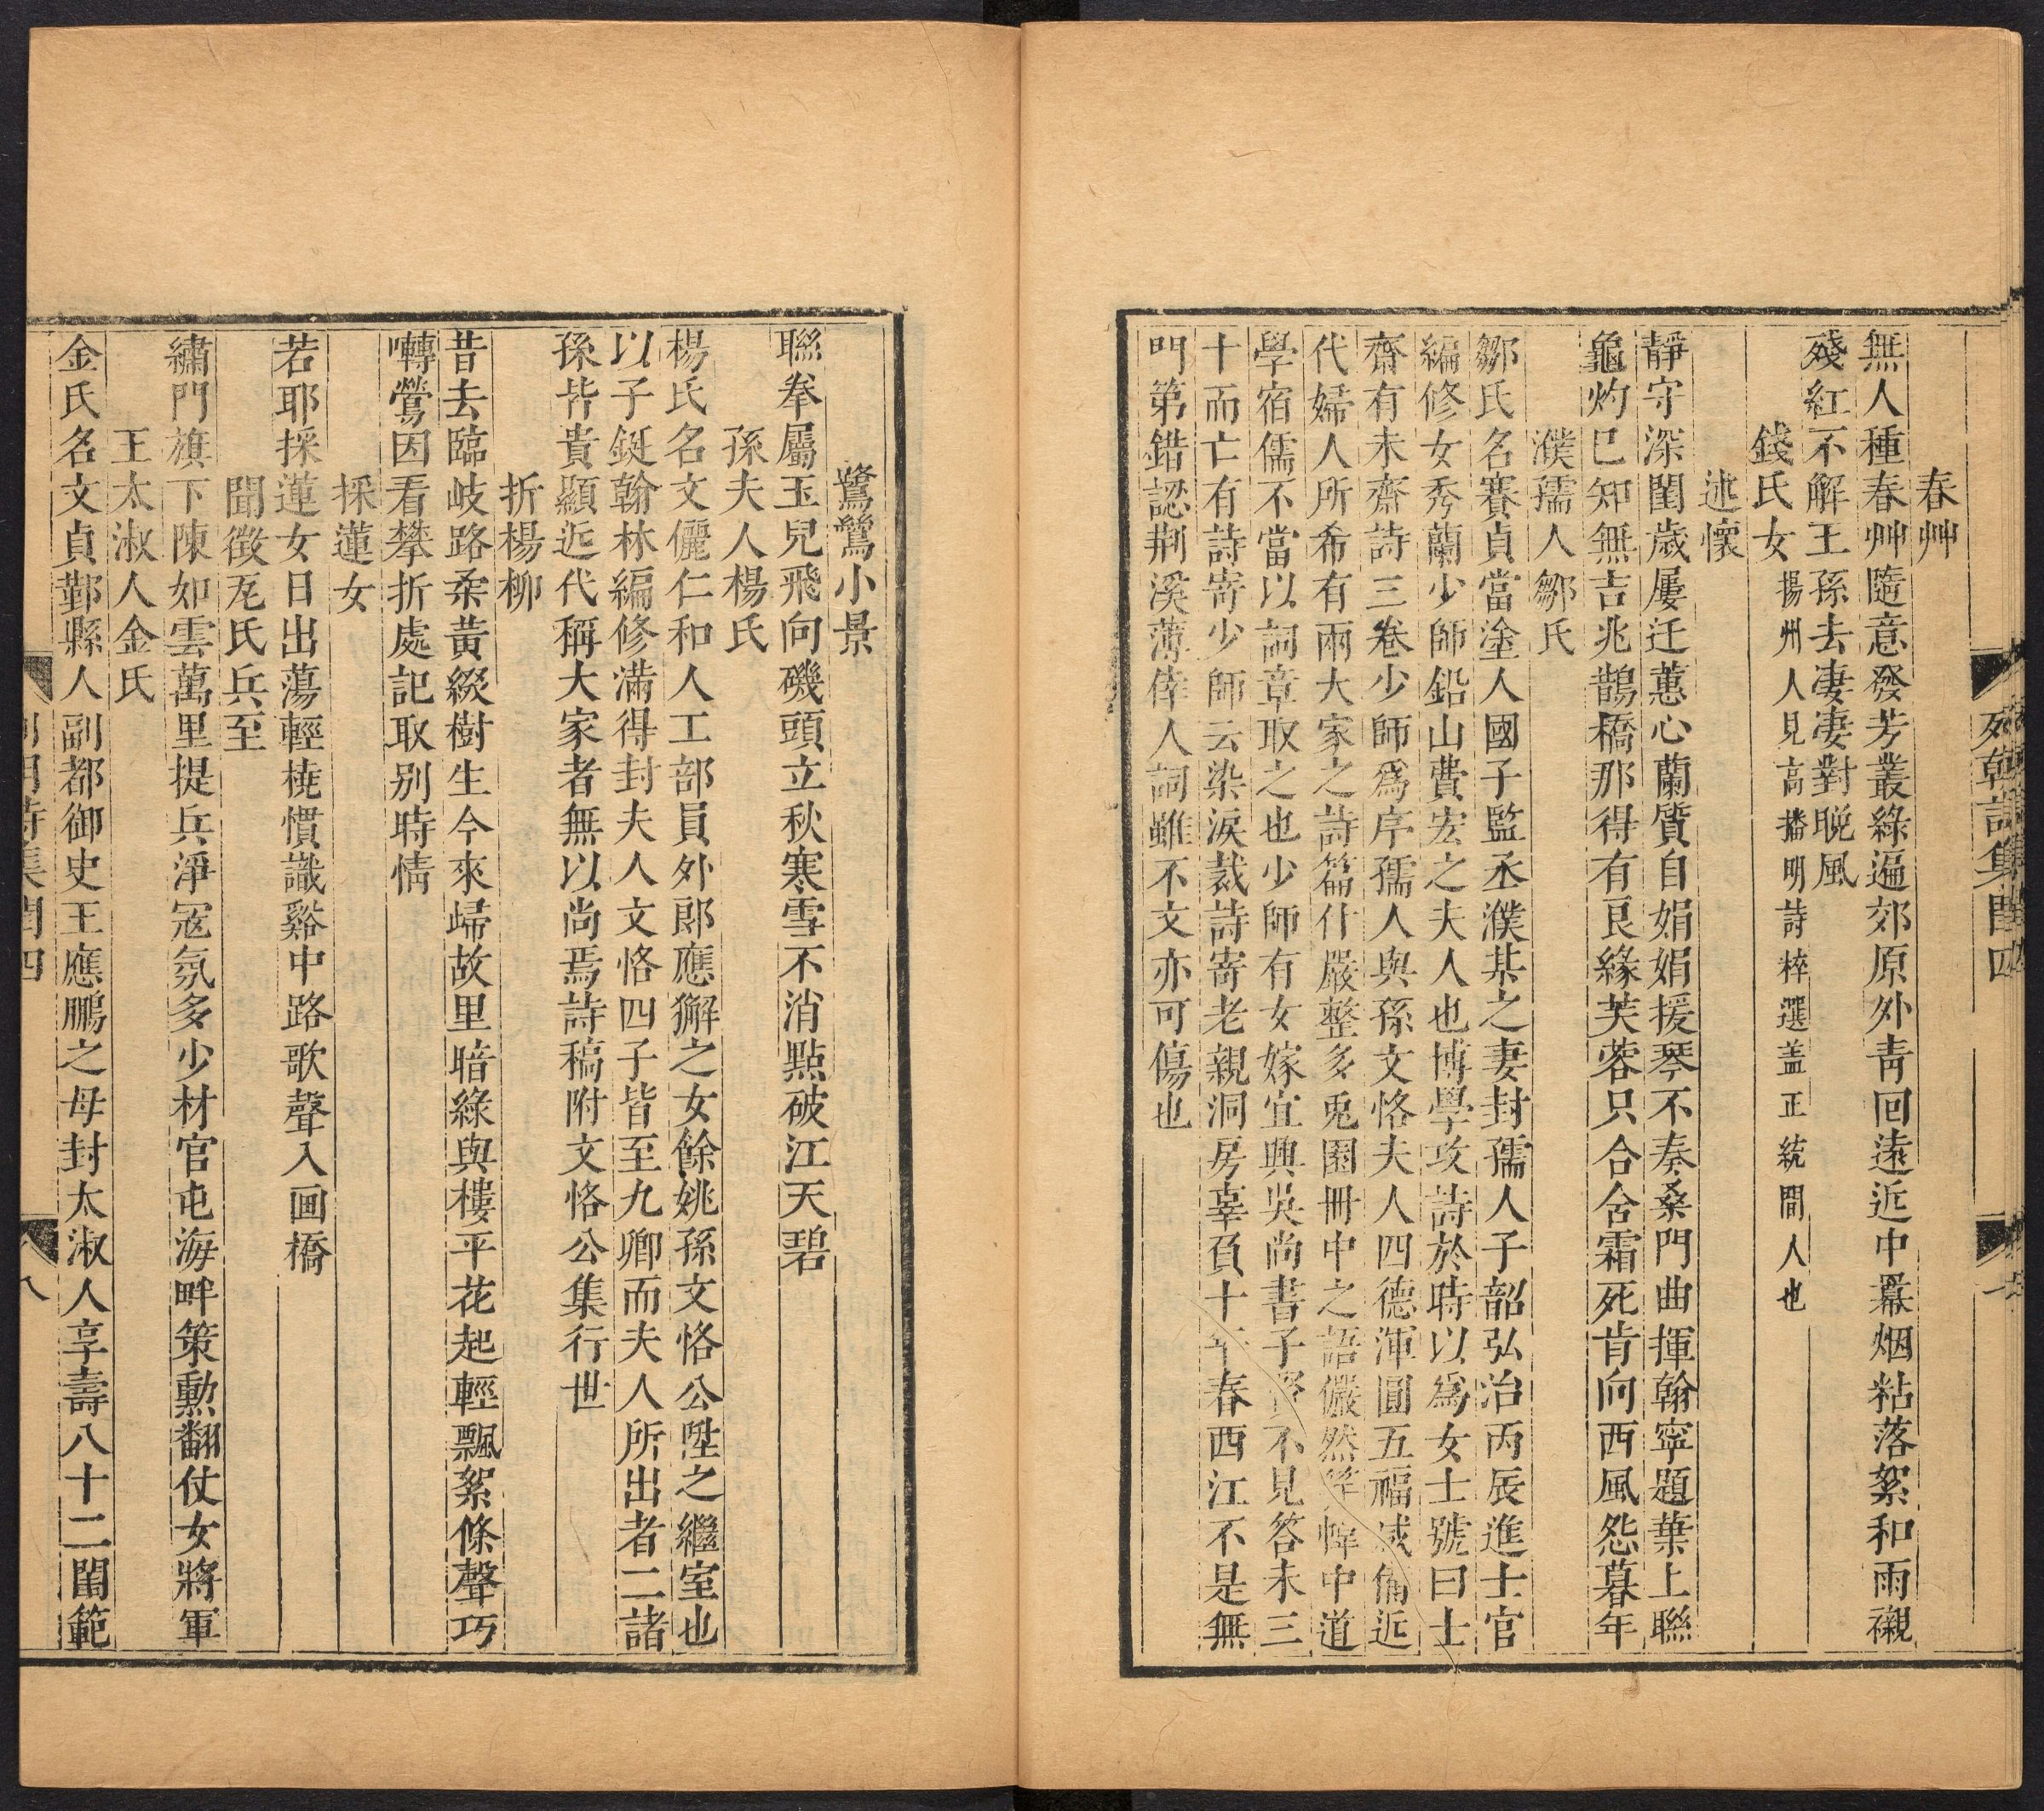 列朝詩集閏四
春艸
無人種春艸隨意發芳叢綠遍郊原外青回遠近中羃烟粘落絮和雨襯
殘紅不解王孫去凄凄對晚風
錢氏女揚州人見高播明詩粹選盖正統間人也
述懷
靜守深閨歲屢迁蕙心蘭質自娟娟援琴不奏桑門曲揮翰寧題葉上聯
龜灼巳知無吉兆鵲橋那得有良緣芙蓉只合舍霜死肯向西風怨暮年
濮孺人鄒氏
鄒氏名賽貞當塗人國子監丞濮某之妻封孺人子韶弘治丙辰進士官
編修女秀蘭少師鉛山費宏之夫人也博學攻詩於時以爲女士號曰士
齋有未齋詩三卷少師爲序孺人與孫文恪夫人四德渾圓五福咸備近
代婦人所希有兩大家之詩篇什嚴整多兎園冊中之語儼然笄幃中道
學宿儒不當以詞章取之也少師有女嫁宜興吳尚書子不見答未三
十而亡有詩寄少師云染淚裁詩寄老親洞房辜負十年春西江不是無
門第錯認荆溪薄倖人詞雖不文亦可傷也
鷺鷥小景
聯拳屬玉兒飛向磯頭立秋寒雪不消點破江天碧
孫夫人楊氏
楊氏名文儷仁和人工部員外郎應獬之女餘姚孫文恪公陞之繼室也
以子鋌翰林編修滿得封夫人文恪四子皆至九卿而夫人所出者二諸
孫皆貴顯近代稱大家者無以尚焉詩稿附文恪公集行世
折楊柳
昔去臨岐路柔黃綴樹生今來歸故里暗綠與樓平花起輕飄絮條聲巧
囀鶯因看攀折處記取别時情
採蓮女
若耶採蓮女日出蕩輕橈慣識谿中路歌聲入画橋
聞徴瓦氏兵至
繡門旗下陳如雲萬里提兵淨寇氛多少材官屯海畔策勲翻仗女將軍
王太淑人金氏
金氏名文貞鄞縣人副都御史王應鵬之母封太淑人享壽八十二閨範
列朝詩集閏四
八